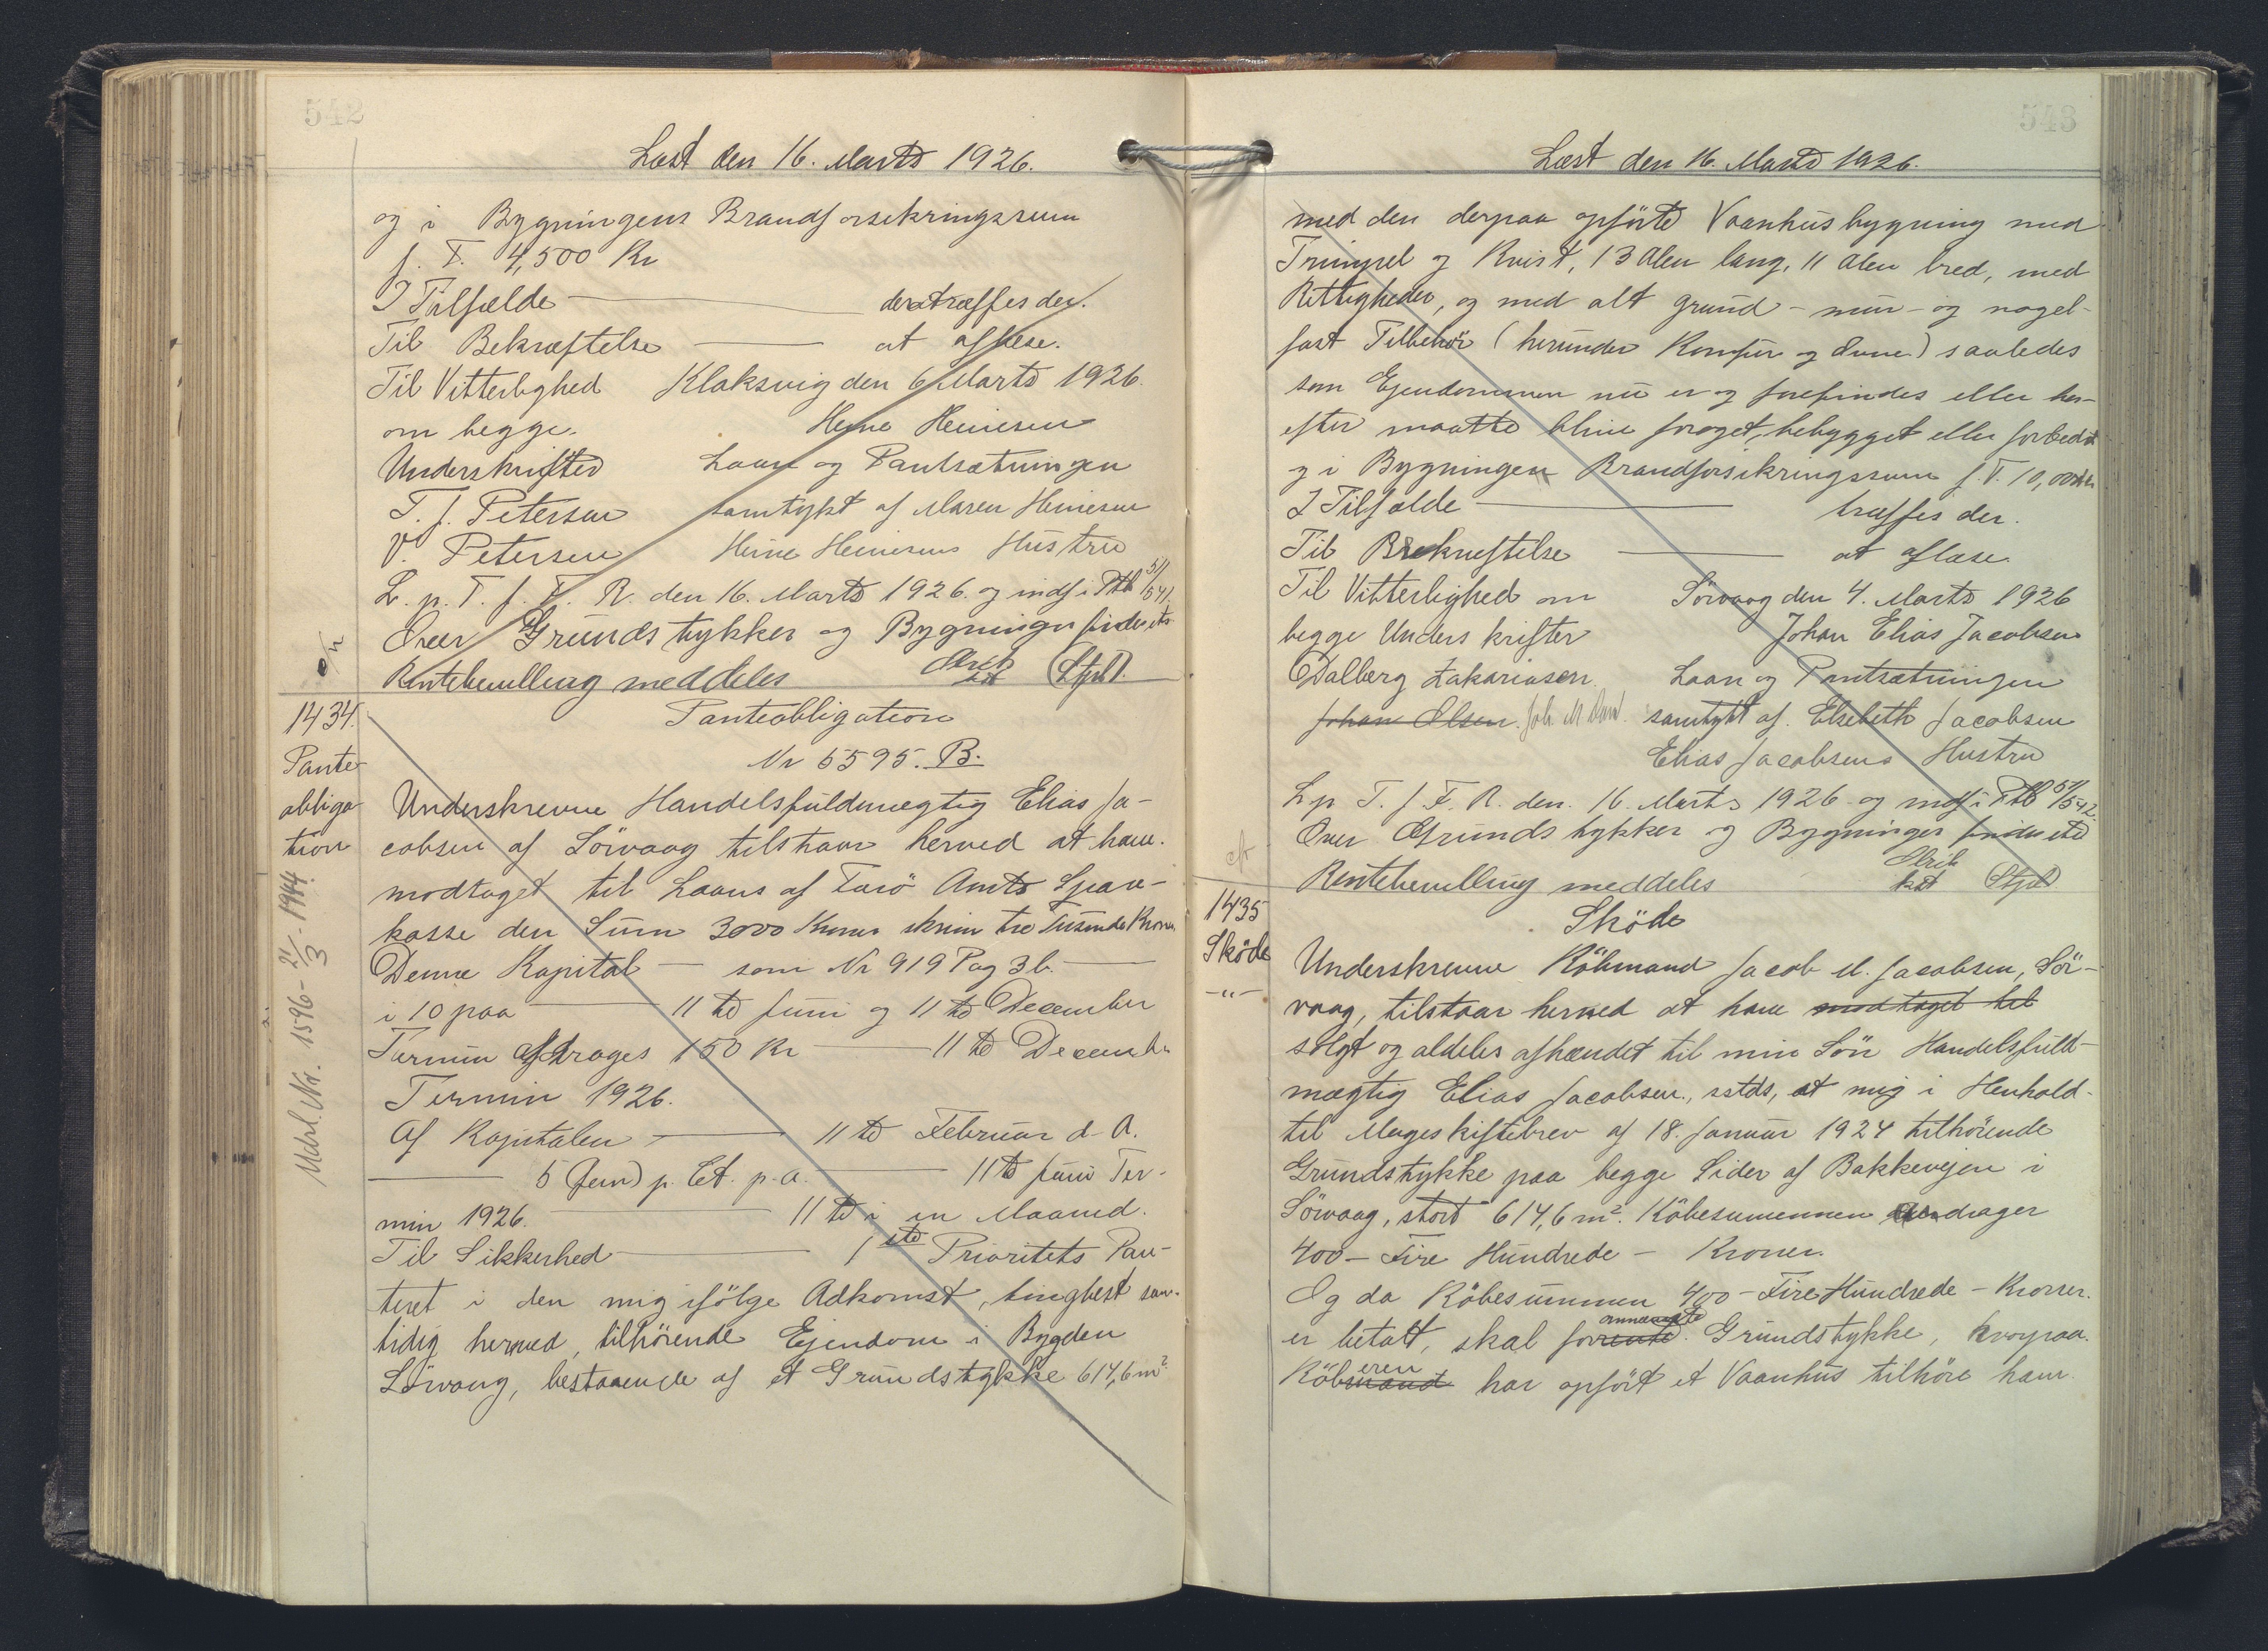 542
Læst den 16. Marts 1926.
og i Bygningens Brandforsikringssum
f. T. 4,500 Kr
I Tilfælde — derotræffes der.
Til Bekræftelse — at aflæse.
Til Vitterlighed Klaksvig den 6 Marts 1926.
om begge. Heine Heinesen
Underskrifter Laan og Pantsætningen
T. J. Petersen samtykt af Maren Heinesen
V. Petersen Heine Heinesens Hustru
L. p. T. f. F. R. den 16. Marts 1926. og indf i Ptb 51/541.
Over Grundstykker og Bygninger findes etc
Rentebevilling meddeles
1434.
Pante
obliga
tion
Matrl. Nr. 1596 - 21/3 - 1944.
Panteobligation
Nr 5595. B.
Underskrevne Handelsfuldmægtig Elias Ja-
cobsen af Sörvaag tilstaar herved at have
modtaget til Laans af Færö Amts Spare-
kasse den Sum 3000 Kroner skriver tre Tusinde Kroner
Denne Kapital — som Nr 919 Pag 3 b. —
i 10 paa — 11 td Juni og 11 td December
Termin afdrages 150 Kr — 11 td Decemb
Termin 1926.
Af Kapitalen — 11 td Februar d. A.
— 5 (fem) p. Ct. p. a. — 11 td Juni Ter-
min 1926. — 11 td i en Maaned.
Til Sikkerhed — 1 ste Prioritets Pan-
teret i den mig ifölge Adkomst, tinglæst sam-
tidig herved, tilhörende Ejendom i Bygden
Sörvaag, bestaaende af et Grundstykke 614,6 m²
543
Læst den 16. Marts 1926.
med den derpaa opförte Vaanhusbygning med
Trempel og Kvist, 13 Alen lang, 11 Alen bred, med
Rettigheder, og med alt grund- mur- og nagel-
fast Tilbehör (herunder Komfur og Ovne) saaledes
som Ejendommen nu er og forefindes eller her-
efter maatte blive foröget, bebygget eller forbedret
og i Bygningen Brandforsikringssum f. T. 10,000 Kr
I Tilfælde — træffes der.
Til Bekræftelse — at aflæse.
Til Vitterlighed om Sörvaag den 4. Marts 1926
begge Underskrifter Johan Elias Jacobsen
Dalberg Zakariasen Laan og Pantsætningen
Johan Olsen. samtykt af. Elsebeth Jacobsen
Elias Jacobsens Hustru
L. p. T. f. F. R. den. 16. Marts 1926 og indf i Ptb 51/542.
Over Grundstykker og Bygninger findes etc
Rentebevilling meddeles
1435
Sköde
-"-
Sköde
Underskrevne Köbmand Jacob M. Jacobsen, Sör-
vaag, tilstaar herved at have modtaget til
solgt og aldeles afhændet til min Sön Handelsfuld-
mægtig Elias Jacobsen, sstds, et mig i Henhold
til Mageskiftebrev af 18. Januar 1924 tilhörende
Grundstykke paa begge Sider af Bakkevejen i
Sörvaag, stort 614,6 m². Köbesummen andrager
400 - Fire Hundrede - Kroner.
Og da Köbesummen 400 - Fire Hundrede - Kroner.
er betalt, skal forrente annævnte Grundstykke, hvorpaa
Köbmand eren har opfört et Vaanhus tilhöre ham